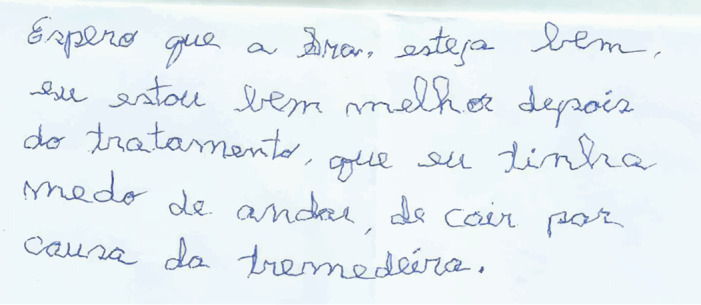 Espero que a Sra. esteja bem.
eu estou bem melhor depois
do tratamento, que eu tinha
medo de andar, de cair por
causa da tremedeira.